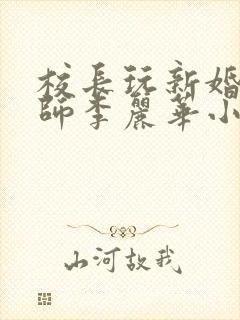 校長玩新婚
師李麗華小
山河故我